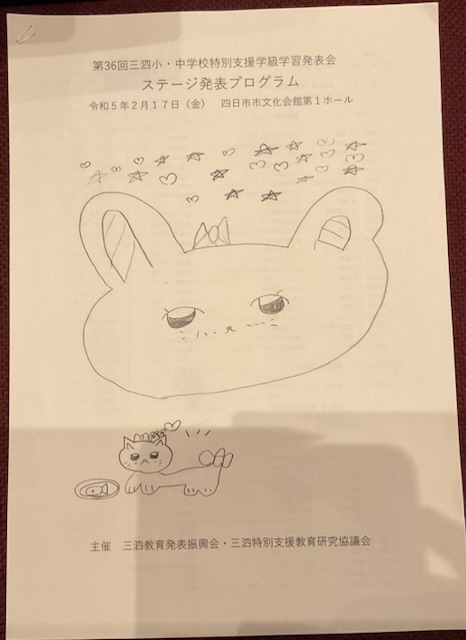 第36回三泗小・中学校特別支援学級学習発表会
ステージ発表プログラム
令和５年２月１７日（金）　四日市市文化会館第１ホール
主催　三泗教育発表振興会・三泗特別支援教育研究協議会